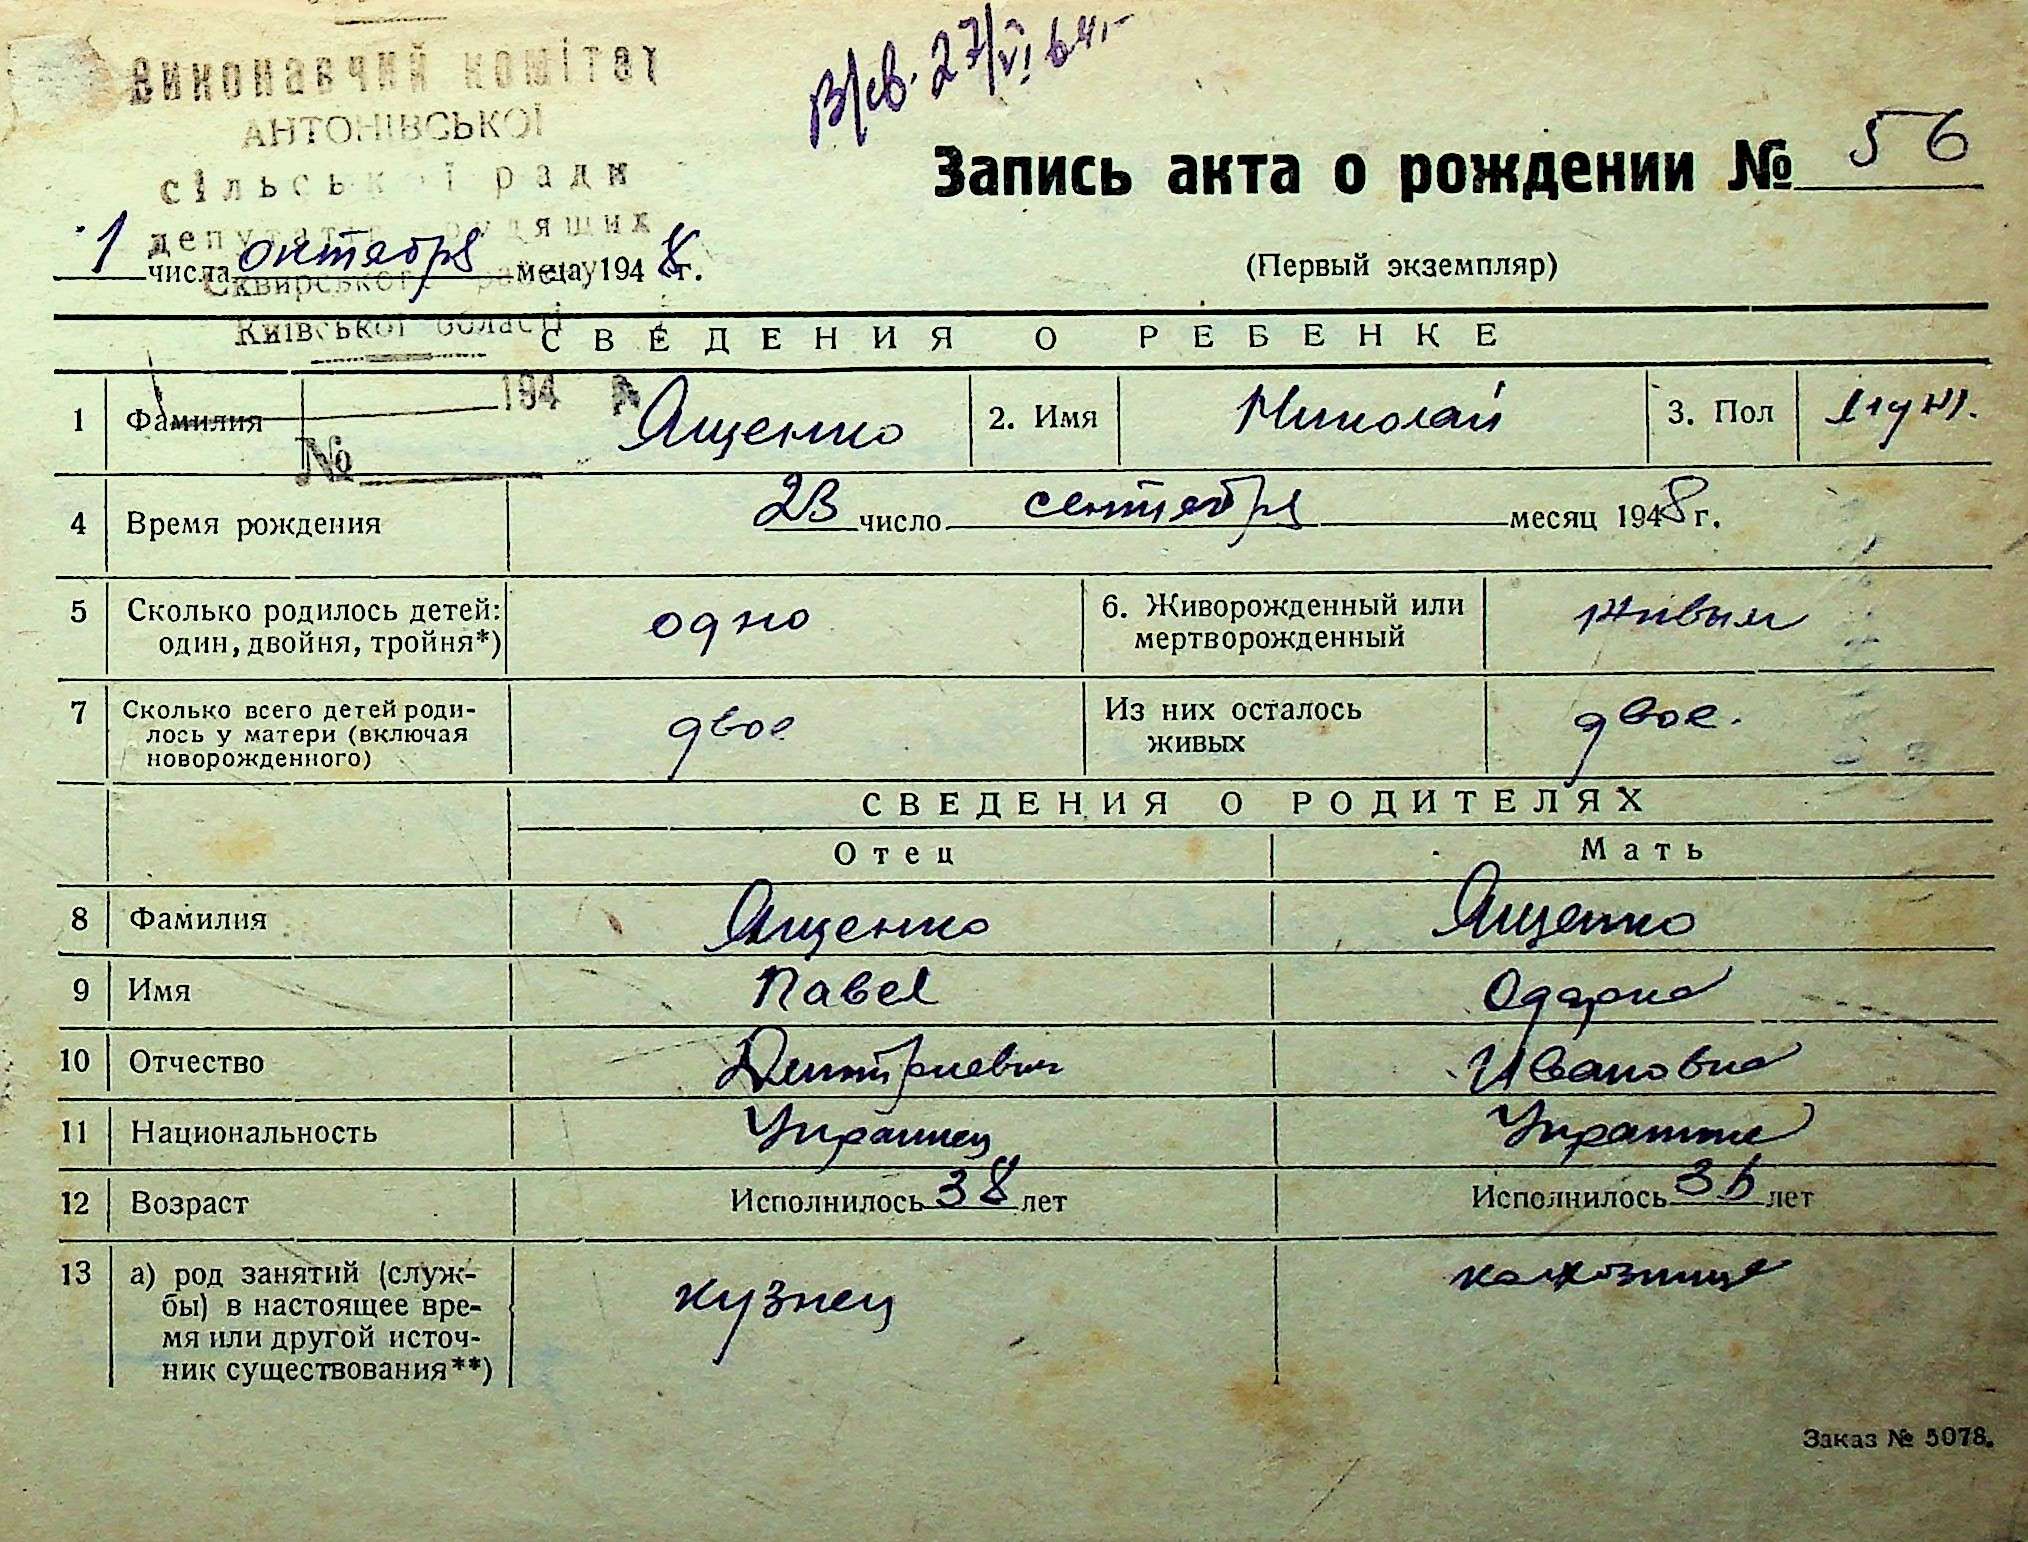 В/св. 27/VI 64 г.
Виконавчий комітет
АНТОНІВСЬКОЇ
сільської ради
депутатів трудящих
Сквирського району
Київської області
194 р.
№
Запись акта о рождении № 56
1 числа октября м-ца 1948 г.
(Первый экземпляр)
СВЕДЕНИЯ О РЕБЕНКЕ
1 Фамилия Ященко 2. Имя Николай 3. Пол муж.
4 Время рождения 23 число сентября месяц 1948 г.
5 Сколько родилось детей: одно 6. Живорожденный или живым
один, двойня, тройня*) мертворожденный
7 Сколько всего детей роди- двое Из них осталось двое.
лось у матери (включая живых
новорожденного)
СВЕДЕНИЯ О РОДИТЕЛЯХ
Отец Мать
8 Фамилия Ященко Ященко
9 Имя Павел Одарка
10 Отчество Дмитриевич Ивановна
11 Национальность Украинец Украинка
12 Возраст Исполнилось 38 лет Исполнилось 36 лет
13 а) род занятий (служ- кузнец колхозница
бы) в настоящее вре-
мя или другой источ-
ник существования**)
Заказ № 5078.